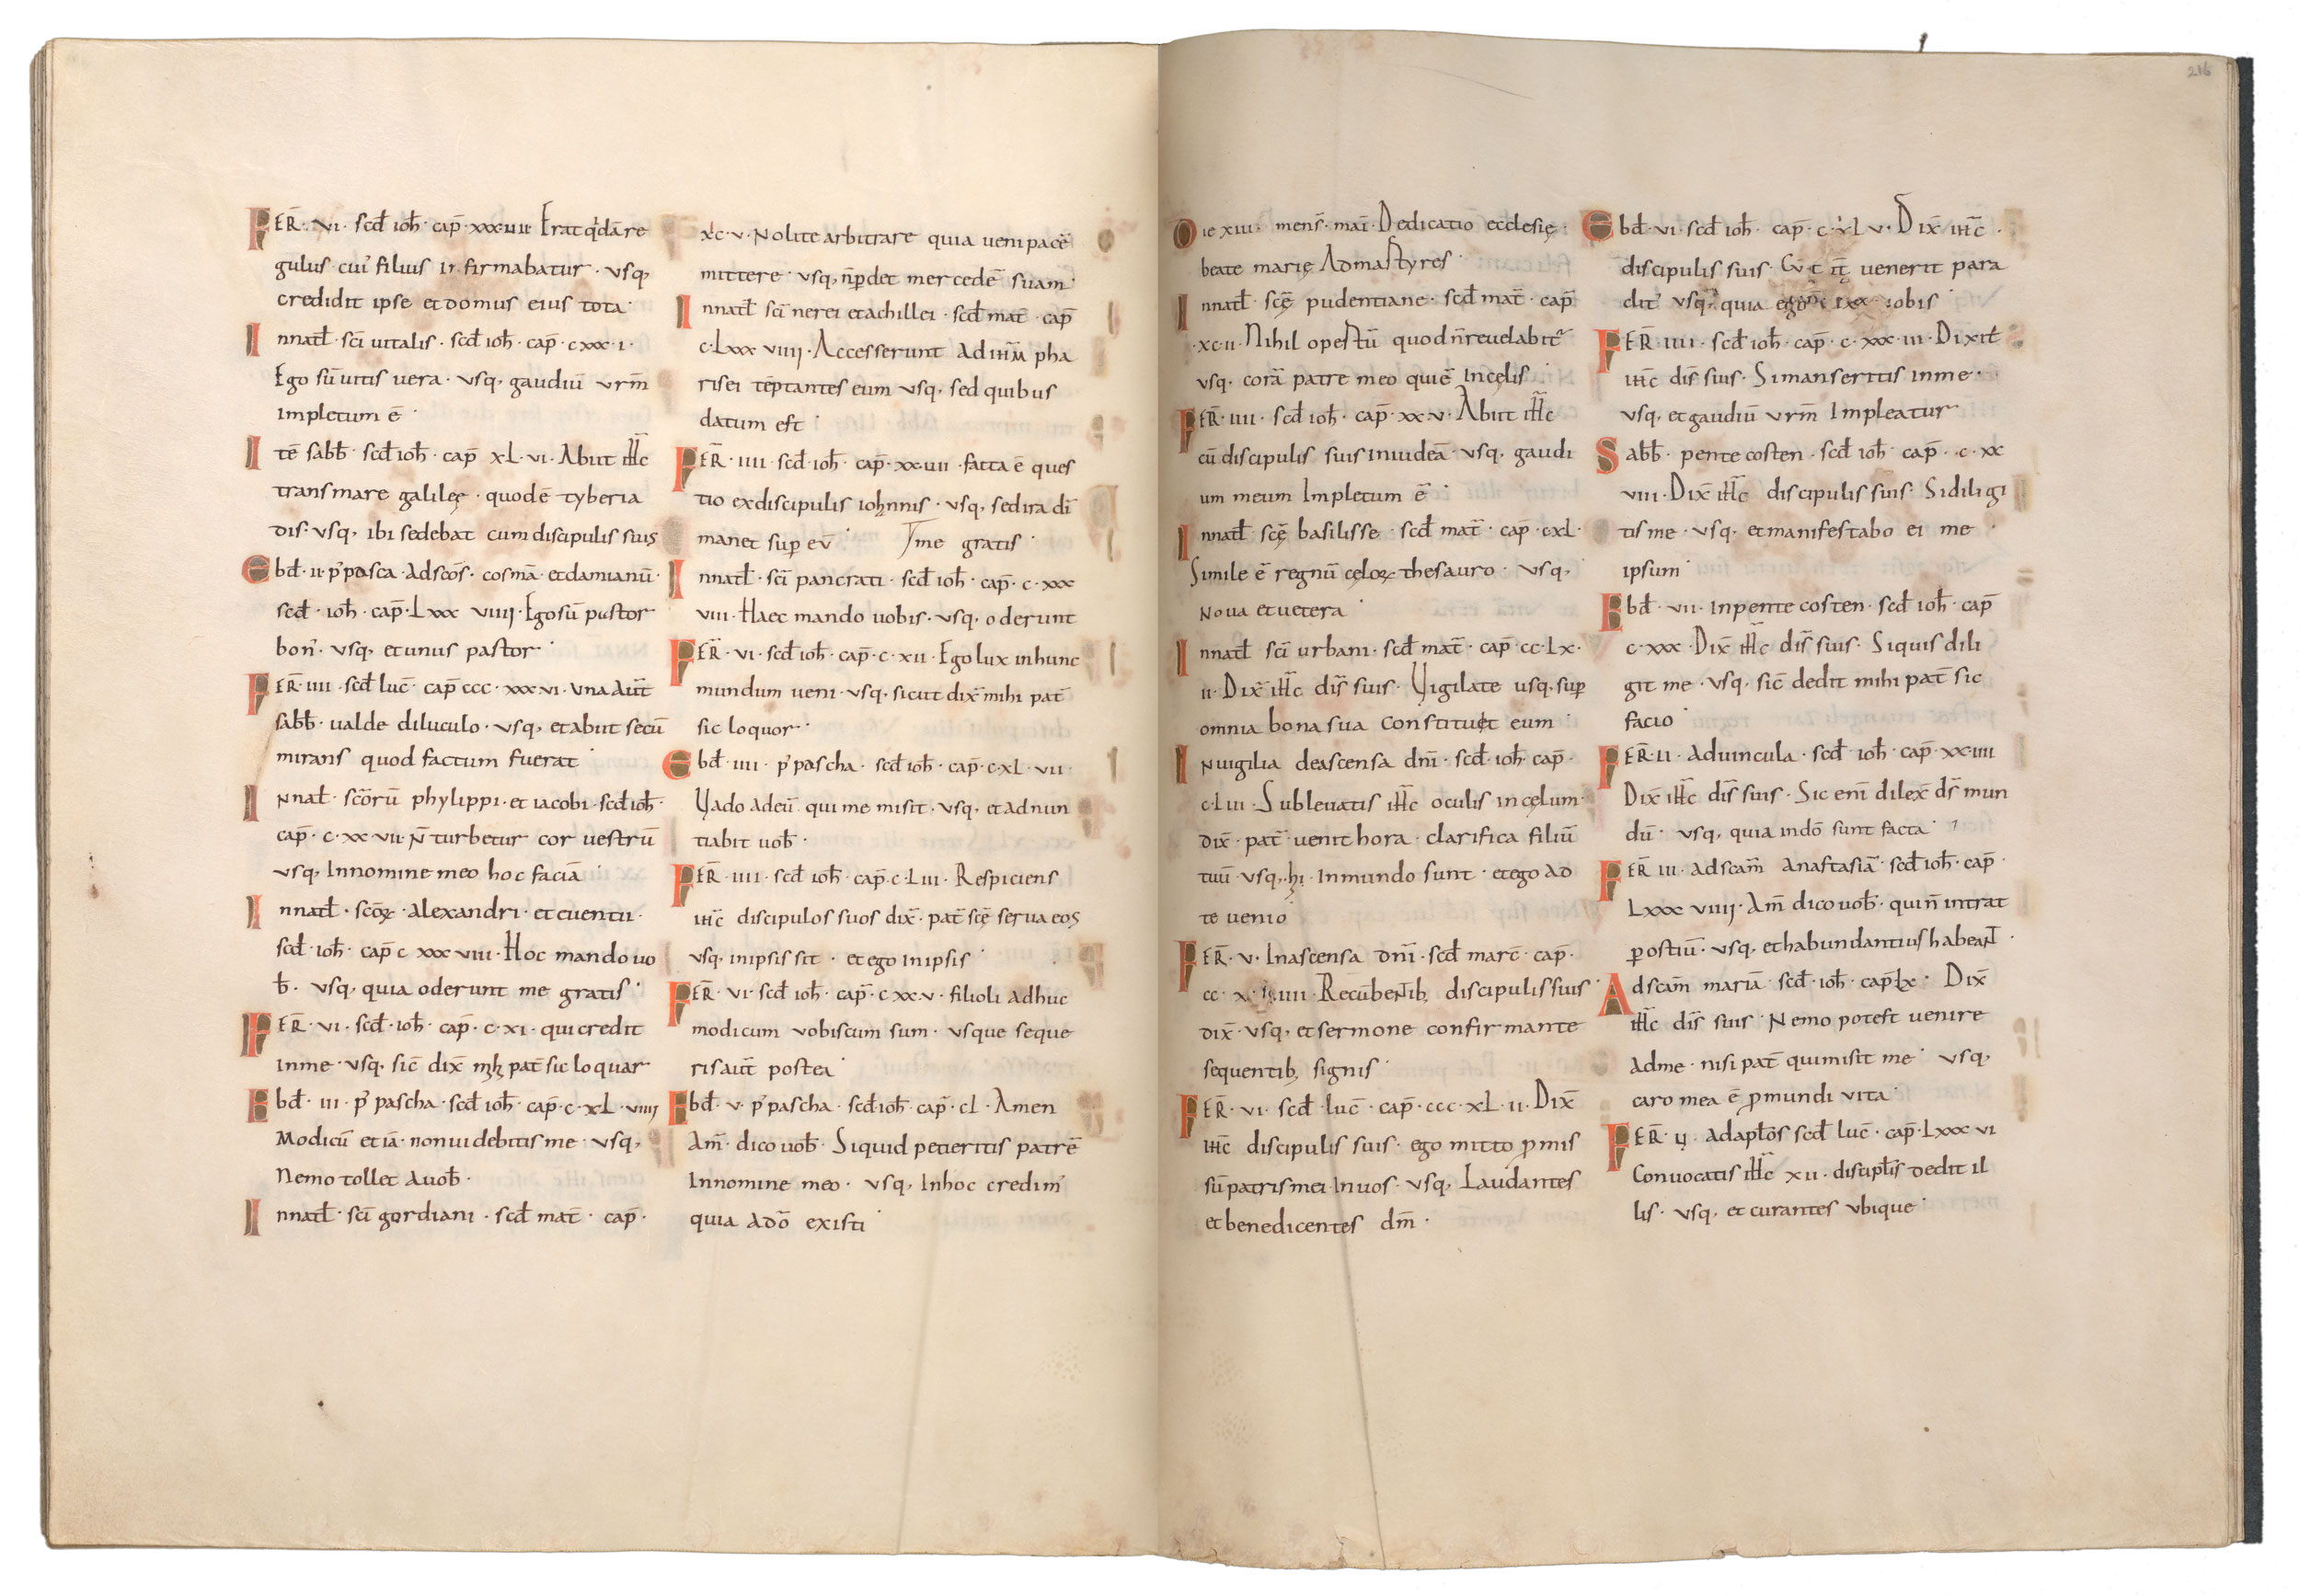 FER̄· VI· scđ ioh̄· cap̄· xxx·IIII Erat q'dā re
gulus cui' filius infirmabatur· usq;
credidit ipse et domus eius tota·
Innatł· sc̄i uitalis· scđ ioh̄· cap̄· c·xxx·I·
Ego sū uitis uera· usq; gaudiū ur̄m
impletum ē·
Itē sabƀ· scđ ioh̄· cap̄ xL·VI· Abiit iħc
trans mare galileę· quod ē tyberia
dis· usq; ibi sedebat cum discipulis suis
Ebđ· II· p' pasca· ad scōs· cosmā· et damianū·
scđ· ioh̄· cap̄· Lxxx VIIII· Ego sū pastor
bon'· usq; et unus pastor·
FER̄· IIII· scđ luc̄· cap̄ ccc· xxx·VI· una aūt
sabƀ· ualde diluculo· usq; et abiit secū
mirans quod factum fuerat·
Innatł· sc̄orū phylippi· et iacobi· scđ ioh̄·
cap̄· c·xx·VII· n̄ turbetur cor uestrū
usq; Innomine meo hoc faciā
Innatł· sc̄oꝝ· alexandri· et euentii·
scđ· ioh̄· cap̄ c xxx VIII· Hoc mando uo
ƀ· usq; quia oderunt me gratis·
FER̄· VI· scđ· ioh̄· cap̄· c·xI· qui credit
inme· usq; sic̄ dix̄ mħ pat̄ sic loquar
Ebđ· III· p' pascha· scđ ioh̄· cap̄· c·xL·VIIII
Modicū et iā· non uidebitis me· usq;
Nemo tollet auoƀ·
Innatł· sc̄i gordiani· scđ mat̄· cap̄·
xc·V· Nolite arbitrare quia ueni pacē
mittere· usq; n̄ ꝑdet mercedē suam·
Innatł· sc̄i nerei et achillei· scđ mat̄· cap̄
c·Lxxx VIIII· Accesserunt ad iħm pha
risei tēptantes eum usq; sed quibus
datum est
FER̄· IIII· scđ ioh̄· cap̄· xx·IIII· facta ē ques
tio ex discipulis iohnnis· usq; sed ira dī
manet suꝑ eū me gratis·
Innatł· sc̄i pancrati· scđ ioh̄· cap̄· c·xxx
VIII· Haec mando uobis· usq; oderunt
FER̄· VI· scđ ioh̄· cap̄· c·xII· Ego lux in hunc
mundum ueni· usq; sicut dix̄ mihi pat̄
sic loquor·
Ebđ· IIII· p' pascha· scđ ioh̄· cap̄· c·xL·VII·
Vado adeū qui me misit· usq; et adnun
tiabit uoƀ·
FER̄· IIII· scđ ioh̄· cap̄· c·LIII· Respiciens
iħc discipulos suos dix̄· pat̄ sc̄ę serua eos
usq; inipsis sit· et ego inipsis·
FER̄· VI· scđ ioh̄· cap̄· c·xx·V· filioli adhuc
modicum uobiscum sum· usque seque
ris aūt postea·
Ebđ· V· p' pascha· scđ ioh̄· cap̄· cL· Amen
Am̄· dico uoƀ· Siquid petieritis patrē
Innomine meo· usq; Inhoc credim'
quia adō existi·
216
Die xIII· mens̄· mai· Dedicatio ecclesię·
beate marię Admartyres·
Innatł· sc̄ę pudentiane· scđ mat̄· cap̄
·xc·II· Nihil opertū quod n̄ reuelabit'
usq; corā patre meo quiē Incęlis·
FER̄· IIII· scđ ioh̄· cap̄· xx·V· Abiit iħc
cū discipulis suis iniudeā· usq; gaudi
um meum Impletum ē·
Innatł· sc̄ę basilisse· scđ mat̄· cap̄· cxL·
Simile ē regnū cęloꝝ thesauro· usq;
Noua et uetera·
Innatł sc̄i urbani· scđ mat̄· cap̄ cc·Lx·
II· Dix̄ iħc dis̄ suis· Vigilate usq; suꝑ
omnia bona sua constituet eum·
Inuigilia deascensa dn̄i· scđ· ioh̄· cap̄·
c·LIII· Subleuatis iħc oculis in cęlum·
dix̄· pat̄ uenit hora· clarifica filiū
tuū· usq; hi· inmundo sunt· et ego ad
te uenio·
FER̄· V· Inascensa dn̄i· scđ marc̄· cap̄·
Recūbentib; discipulis suis·
dix̄· usq; et sermone confirmante
sequentib; signis·
FER̄· VI· scđ· luc̄· cap̄· ccc·xL·II· Dix̄
iħc discipulis suis· ego mitto ꝓmis
sū patris mei Inuos· usq; Laudantes
et benedicentes dm̄·
Ebđ· VI· scđ ioh̄· cap̄· c·xLV· Dix̄ iħc·
discipulis suis· uenerit para
clit' usq; quia uobis·
FER̄· IIII· scđ ioh̄· cap̄· c·xxx·III· Dixit
iħc dis̄ suis· Simanseritis inme·
usq; et gaudiū ur̄m Impleatur
Sabƀ· pentecosten· scđ ioh̄· cap̄· c·xx
VIII· Dix̄ iħc discipulis suis· Sidiligi
tis me· usq; et manifestabo ei me·
ipsum·
Ebđ· VII· inpentecosten· scđ ioh̄· cap̄
c·xxx· Dix̄ iħc dis̄ suis· Siquis dili
git me· usq; sic̄ dedit mihi pat̄ sic
facio·
FER̄· II· aduincula· scđ· ioh̄· cap̄· xx·IIII
Dix̄ iħc dis̄ suis· Sic enī dilex̄ ds̄ mun
dū· usq; quia indō sunt facta·
FER̄ III· adscam̄ anastasiā· scđ ioh̄· cap̄·
Lxxx VIIII· Am̄ dico uoƀ· qui n̄ intrat
ꝑ ostiū· usq; et habundantius habeant·
Adscam̄ mariā· scđ· ioh̄· cap̄ Lx· Dix̄
iħc dis̄ suis· Nemo potest uenire
adme· nisi pat̄ qui misit me· usq;
caro mea ē ꝓ mundi uita·
FER̄· adaptōs scđ luc̄· cap̄· Lxxx VI
Conuocatis iħc xII· discipłis dedit il
lis· usq; et curantes ubique·